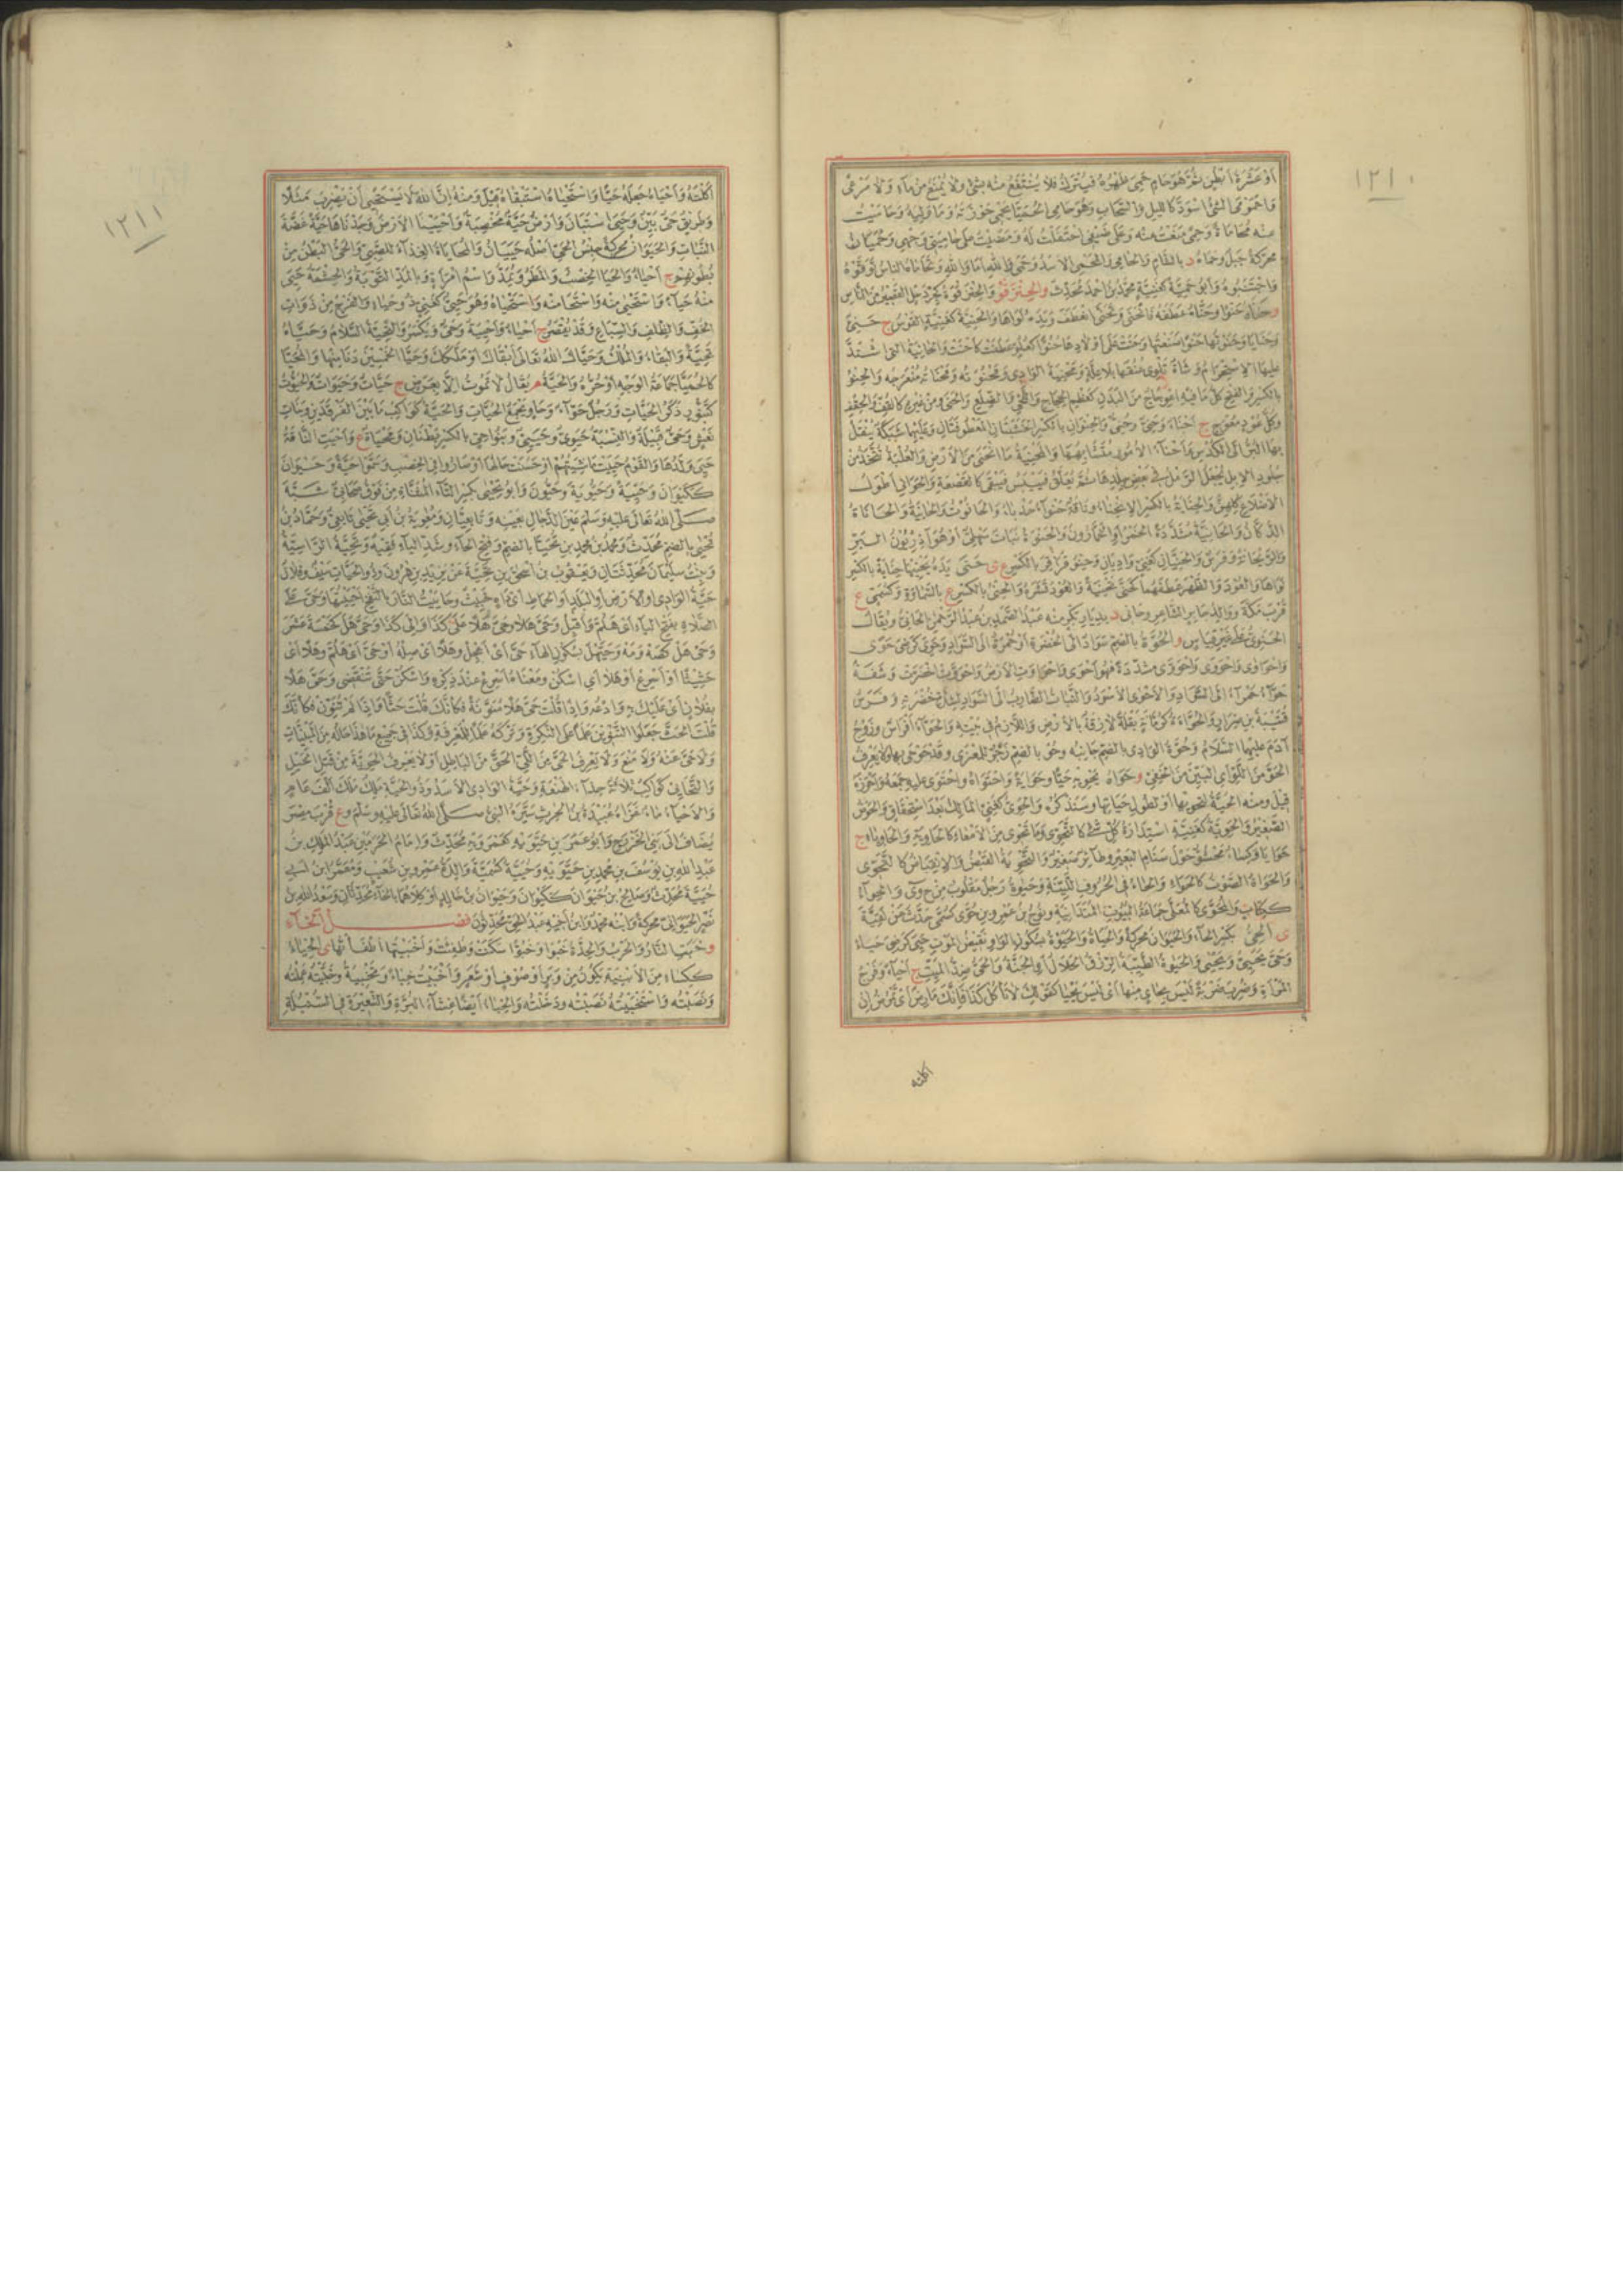 ١٢١٠
أو عشرة أبطن ثم هو حام حمى ظهره فيترك فلا ينتفع منه بشئ ولا يمنع من ماء ولا مرعى
واحمومى الشئ اسود كالليل والسحاب وهو حامي الحميا يحمي حوزته وما وليه وحاميت
عنه محاماة وحمى منعت عنه وعلى ضيفي احتفلت له ومضيت على حاميتي وجهي وحميان
محركة جبل وحماة د بالشام والحامي والمحمي الأسد وحمى والله أما والله وتحاماه الناس توقوه
واجتنبوه وأبو حمية كغنية محمد بن أحمد محدث والحنزقو
و حناه حنوا وحناه عطفه فانحنى وتحنى انعطف ويده لواها والحنية كغنية القوس ج حني
وحنايا وحنوتها حنوا صنعتها وحنت على أولادها حنوا كعلو عطفت كأحنت والحانية التي اشتد
عليها الاستحرام وشاة تلوي عنقها بلا علة ومحنية الوادي ومحنوته ومحناته منعرجه والحنو
بالكسر والفتح كل ما فيه اعوجاج من البدن كعظم الحجاج واللحي والضلع والحنى ومن غيره كالقف والحقف
وكل عود معوج ج أحناء وحني وحني والحنوان بالكسر الخشبتان المعطوفتان وعليهما شبكة ينقل
بها البر إلى الكدس وأحناء الأمور متشابهها والمحنية ما انحنى من الأرض والعلبة تتخذ من
جلود الإبل يجعل الرمل في بعض جلدها ثم يعلق فييبس فيبقى كالقصعة والحواني أطول
الأضلاع كلهن والحناية بالكسر الانحناء وناقة حنواء حدباء والحانوت والحانية والحاناة
الدكان والحانية مشددة الخمر أو الخمارون والحنوة نبات سهلي أو هو آذريون البر
والريحانة وفرس والحنيان كغني واديان وحنو قراقر بالكسر ع ى حنى يده يحنيها حناية بالكسر
لواها والعود والظهر عطفهما كحنى تحنية والعود قشره والحني بالكسر ع بالسماوة وكسمي ع
قرب مكة ووالد جابر الشاعر وحاني د بديار بكر منه عبد الصمد بن عبد الرحمن الحاني ويقال
الحنوي على غير قياس و الحوة بالضم سواد إلى الخضرة أو حمرة إلى السواد وحوي كرضي حوى
واحواوى واحووى واحووى مشددة فهو أحوى واحواوت الأرض واحووت اخضرت وشفة
حواء حمراء إلى السواد والأحوى الأسود والنبات الضارب إلى السواد لشدة خضرته وفرس
قتيبة بن ضرار والحواءة كرمانة بقلة لازقة بالأرض واللازم في بيته والحواء أفراس وزوج
آدم عليهما السلام وحوة الوادي بالضم جانبه وحو بالضم زجر للمعزى وقد حوحى بها ولا يعرف
الحو من اللو أي البين من الخفي و حواه يحويه حيا وحواية واحتواه واحتوى عليه جمعه وأحرزه
قيل ومنه الحية لتحويها أو لطول حياتها وستذكر والحوي كغني المالك بعد استحقاق والحوض
الصغير والحوية كغنية استدارة كل شئ كالتحوي وما تحوى من الأمعاء كالحاوية والحاوياء ج
حوايا وكساء محشو حول سنام البعير وطائر صغير والتحوية القبض والانقباض كالتحوي
والحواة الصوت كالحواء والحاء في الحروف اللينة وحيوة رجل مقلوب من ح وى والحواء
ككتاب والمحوى كالمعلى جماعة البيوت المتدانية ونوح بن عمرو بن حوى كسمي حدث عن بقية
ى الحي بكسر الحاء والحيوان محركة والحياة والحيوة بسكون الواو نقيض الموت حيي كرضي حياة
وحي يحيى ويحيي والحيوة الطيبة الرزق الحلال أو الجنة والحي ضد الميت ج أحياء وفرج
المرأة وضرب ضربة ليس بحاي منها أي ليس يحيا كقولك لا تأكل كذا فإنك مارض أي تمرض إن
أكلته
١٢١١
أكلته وأحياه جعله حيا واستحياه استبقاه قيل ومنه إن الله لا يستحيي أن يضرب مثلا
وطريق حي بين وحيي استبان وأرض حية مخصبة وأحيينا الأرض وجدناها حية غضة
النبات والحيوان محركة جنس الحي أصله حييان والمحاياة الغذاء للصبي والحي البطن من
بطونهم ج أحياء والحيا الخصب والمطر ويمد واسم امرأة وبالمد التوبة والحشمة حيي
منه حياء واستحيى منه واستحى منه واستحياه وهو حيي كغني ذو حياء والفرج من ذوات
الخف والظلف والسباع وقد يقصر ج أحياء وأحيية وحي ويكسر والتحية السلام وحياه
تحية والبقاء والملك وحياك الله تعالى أبقاك أو ملكك وحيا الخمسين دنا منها والمحيا
كالحميا جماعة الوجه أو حره والحية م يقال لا تموت إلا بعرض ج حيات وحيوات والحيوت
كتنور ذكر الحيات ورجل حواء وحاو يجمع الحيات والحية كواكب ما بين الفرقدين وبنات
نعش وحي قبيلة والنسبة حيوي وحييي وبنو حي بالكسر بطنان ومحياة ع وأحيت الناقة
حيي ولدها والقوم حييت ماشيتهم أو حسنت حالها أو صاروا في الخصب وسموا حية وحيوان
ككيوان وحيية وحيوية وحيون وأبو تحيى بكسر التاء المثناة من فوق صحابي شبه
صلى الله تعالى عليه وسلم عين الدجال بعينه وتابعيان ومعوية بن أبي تحيى تابعي وحماد بن
تحيى بالضم محدث ومحمد بن محمد بن تحيا بالضم وفتح الحاء وشد الياء فقيه وتحية الراسبية
وبنت سليمان محدثتان ويعقوب بن إسحق بن تحية عن يزيد بن هرون وذو الحيات سيف وفلان
حية الوادي أو الأرض أو البلد أو الحماط أي داه خبيث وحاييت النار بالنفخ أحييتها وحي على
الصلاة بفتح الياء أي هلم وأقبل وحي هلا وحي هلا على كذا وإلى كذا وحي هل كخمسة عشر
وحي هل كصه ومه وحيهل بسكون الهاء حي أي اعجل وهلا أي صله أو حي أي هلم وهلا أي
حثيثا أو أسرع أو هلا أي اسكن ومعناه أسرع عند ذكره واسكن حتى تنقضي وحي هلا
بفلان أي عليك به وادعه وإذا قلت حي هلا منونة فكأنك قلت حثا وإذا لم تنون فكأنك
قلت الحث جعلوا التنوين علما على النكرة وتركه علما للمعرفة وكذا في جميع ما هذا حاله من المبنيات
ولا حي عنه ولا منع ولا يعرف الحي من اللي الحق من الباطل أو لا يعرف الحوية من فتل الحبل
والتحايي كواكب ثلاثة حذاء الهنعة وحية الوادي الأسد وذو الحية ملك ملك ألف عام
والأحياء ماء غزاه عبيدة بن الحرث سيره النبي صلى الله تعالى عليه وسلم وع قرب مصر
يضاف إلى بني الخزرج وأبو عمر بن حيويه كعمرويه محدث وإمام الحرمين عبد الملك بن
عبد الله بن يوسف بن محمد بن حيويه وحيية كسمية والدة عمرو بن شعيب ومعمر ابن أبي
حيية محدث وصالح بن حيوان ككيوان وحيوان بن خالد أو كلاهما بالخاء محدثان وسعد الله بن
نصر الحيواني محركة وابنه محمد وابن أخيه عبد الحق محدثون فصل الخاء
و خبت النار والحرب والحدة خبوا وخبوا سكنت وطفئت وأخبيتها أطفأتها ى الخباء
ككساء من الأبنية يكون من وبر أو صوف أو شعر وأخبيت خباء وتخبيته وخبيته عملته
ونصبته واستخبيته نصبته ودخلته والخباء أيضا غشاء البرة والشعيرة في السنبلة